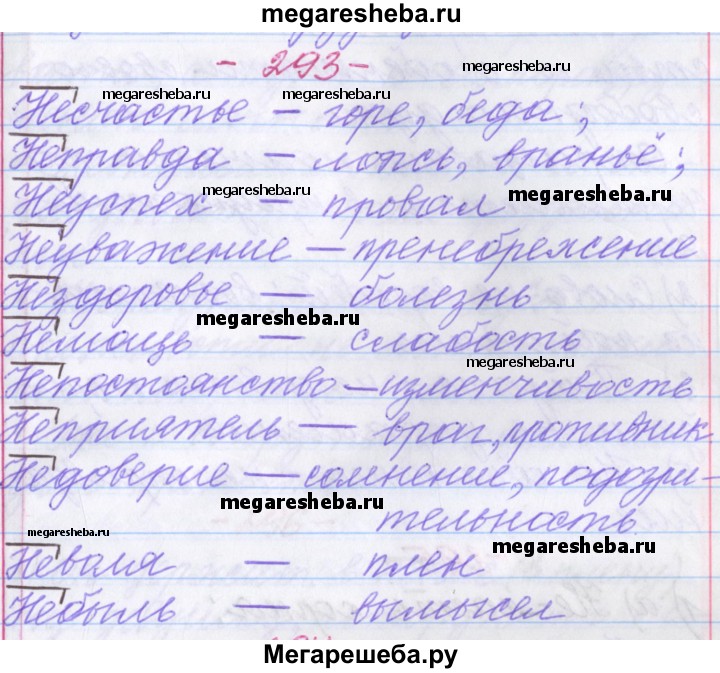 megaresheba.ru
- 293 -
megaresheba.ru
megaresheba.ru megaresheba.ru
Несчастье — горе, беда;
Неправда — ложь, враньё;
megaresheba.ru
megaresheba.ru
Неуспех — провал
Неуважение — пренебрежение
Нездоровье — болезнь
megaresheba.ru
Немощь — слабость
megaresheba.ru
Непостоянство — изменчивость
Неприятель — враг, противник
Недоверие — сомнение, подозри-
megaresheba.ru
тельность
megaresheba.ru
megaresheba.ru
Неволя — плен
Небыль — вымысел
Мегарешеба.ру